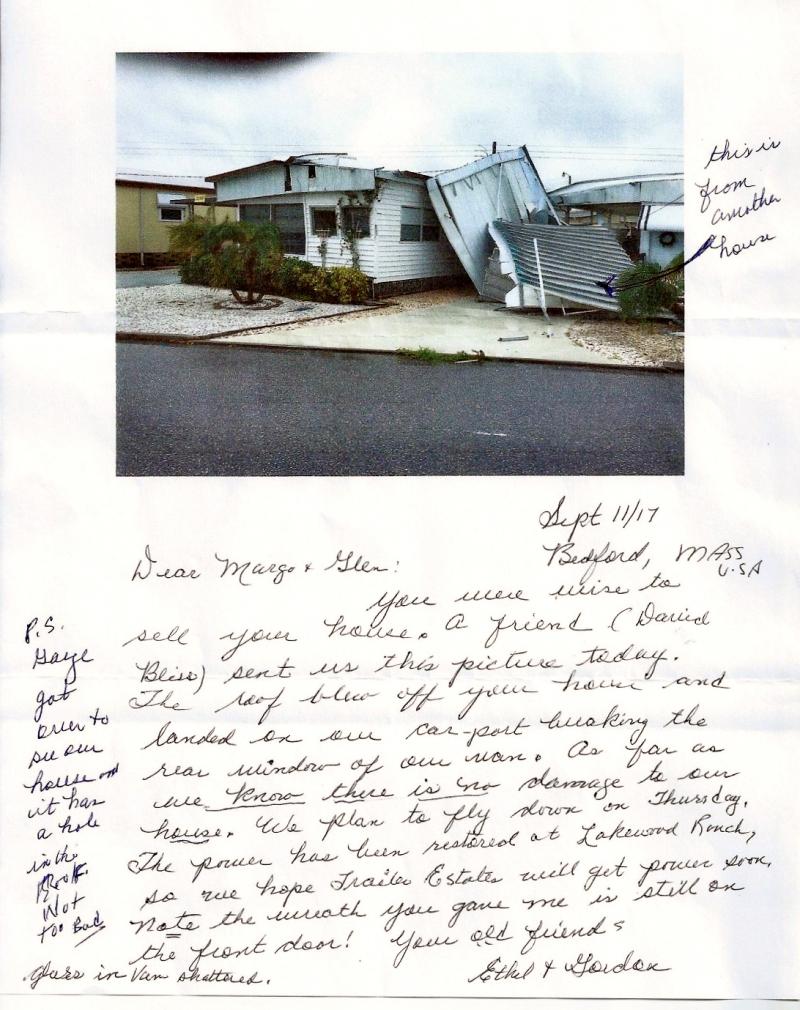 this is
from
another
house
Sept 11/17
Bedford, MASS
U.SA
Dear Margo & Glen:
You were wise to
sell your house. A friend (David
Bliss) sent us this picture today.
The roof blew off your house and
landed on our car-port breaking the
rear window of our van. As far as
we know there is no damage to our
house. We plan to fly down on Thursday.
The power has been restored at Lakewood Ranch,
so we hope Trailer Estates will get power soon.
Note the wreath you gave me is still on
the front door! Your old friends
Ethel & Gordon
P.S.
Gaye
got
over to
see our
house and
it has
a hole
in the
Roof.
Not
too Bad
glass in Van shattered.